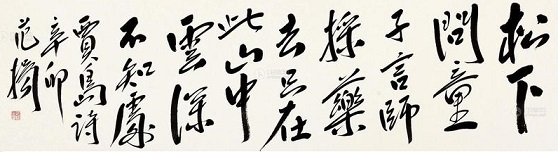 松下
問童
子言師
採藥
去只在
此山中
雲深
不知處
賈島詩
辛卯
范